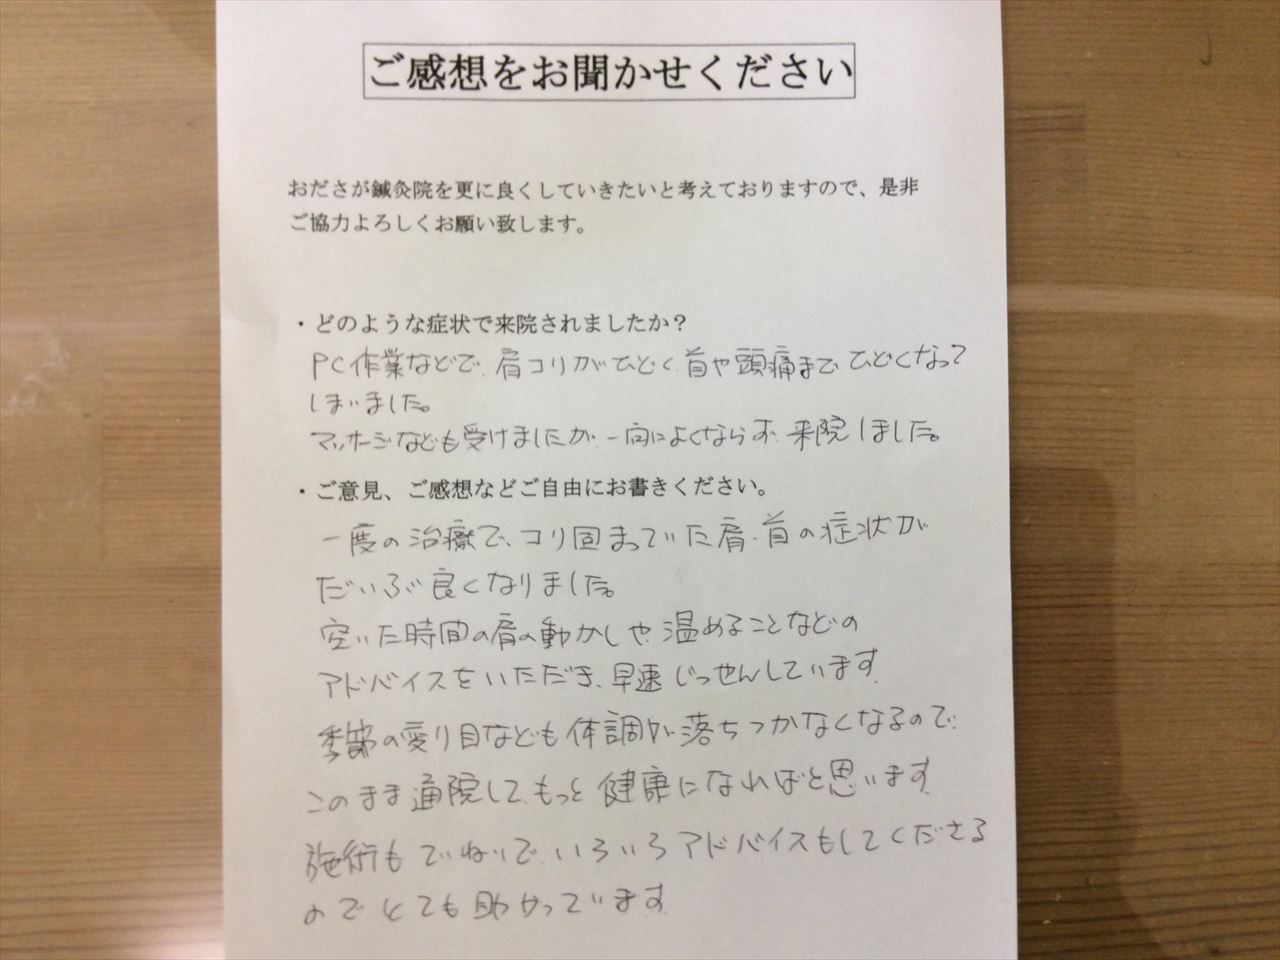 ご感想をお聞かせください
おださが鍼灸院を更に良くしていきたいと考えておりますので、是非
ご協力よろしくお願い致します。
・どのような症状で来院されましたか？
PC作業などで、肩コリがひどく、首や頭痛までひどくなって
しまいました。
マッサージなども受けましたが、一向によくならず、来院しました。
・ご意見、ご感想などご自由にお書きください。
一度の治療で、コリ固まっていた肩・首の症状が
だいぶ良くなりました。
空いた時間の肩の動かしや、温めることなどの
アドバイスをいただき、早速じっせんしています。
季節の変り目なども体調が落ちつかなくなるので、
このまま通院して、もっと健康になればと思います。
施術もていねいで、いろいろアドバイスもしてくださる
のでとても助かっています。